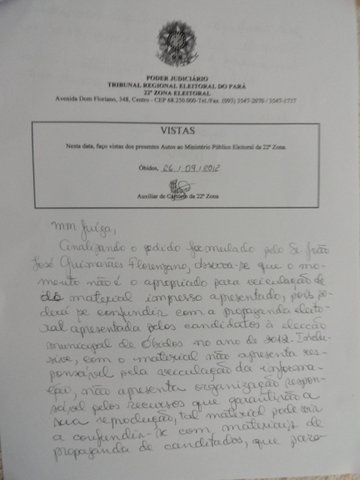 PODER JUDICIÁRIO
TRIBUNAL REGIONAL ELEITORAL DO PARÁ
22ª ZONA ELEITORAL
Avenida Dom Floriano, 348, Centro - CEP 68.250.000-Tel/Fax. (093) 3547-2076 / 3547-1737
VISTAS
Nesta data, faço vistas dos presentes Autos ao Ministério Público Eleitoral da 22ª Zona.
Óbidos, 26 / 09 / 2012
Auxiliar de Cartório da 22ª Zona
MM Juíza,
Analizando o pedido formulado pelo Sr. João
José Guimarães Florenzano, observa-se que o mo-
mento não é o apropriado para veiculação de
do material impresso apresentado, pois po-
derá se confundir com a propaganda eleito-
ral apresentada pelos candidatos à eleição
municipal de Óbidos no ano de 2012. Inclu-
sive, com o material não apresenta res-
ponsável pela veiculação da informa-
ção, não apresenta organização respon-
sável pelos recursos que garantirão a
sua reprodução, tal material pode vir
a confundir-se com materiais de
propaganda de canditados, que para